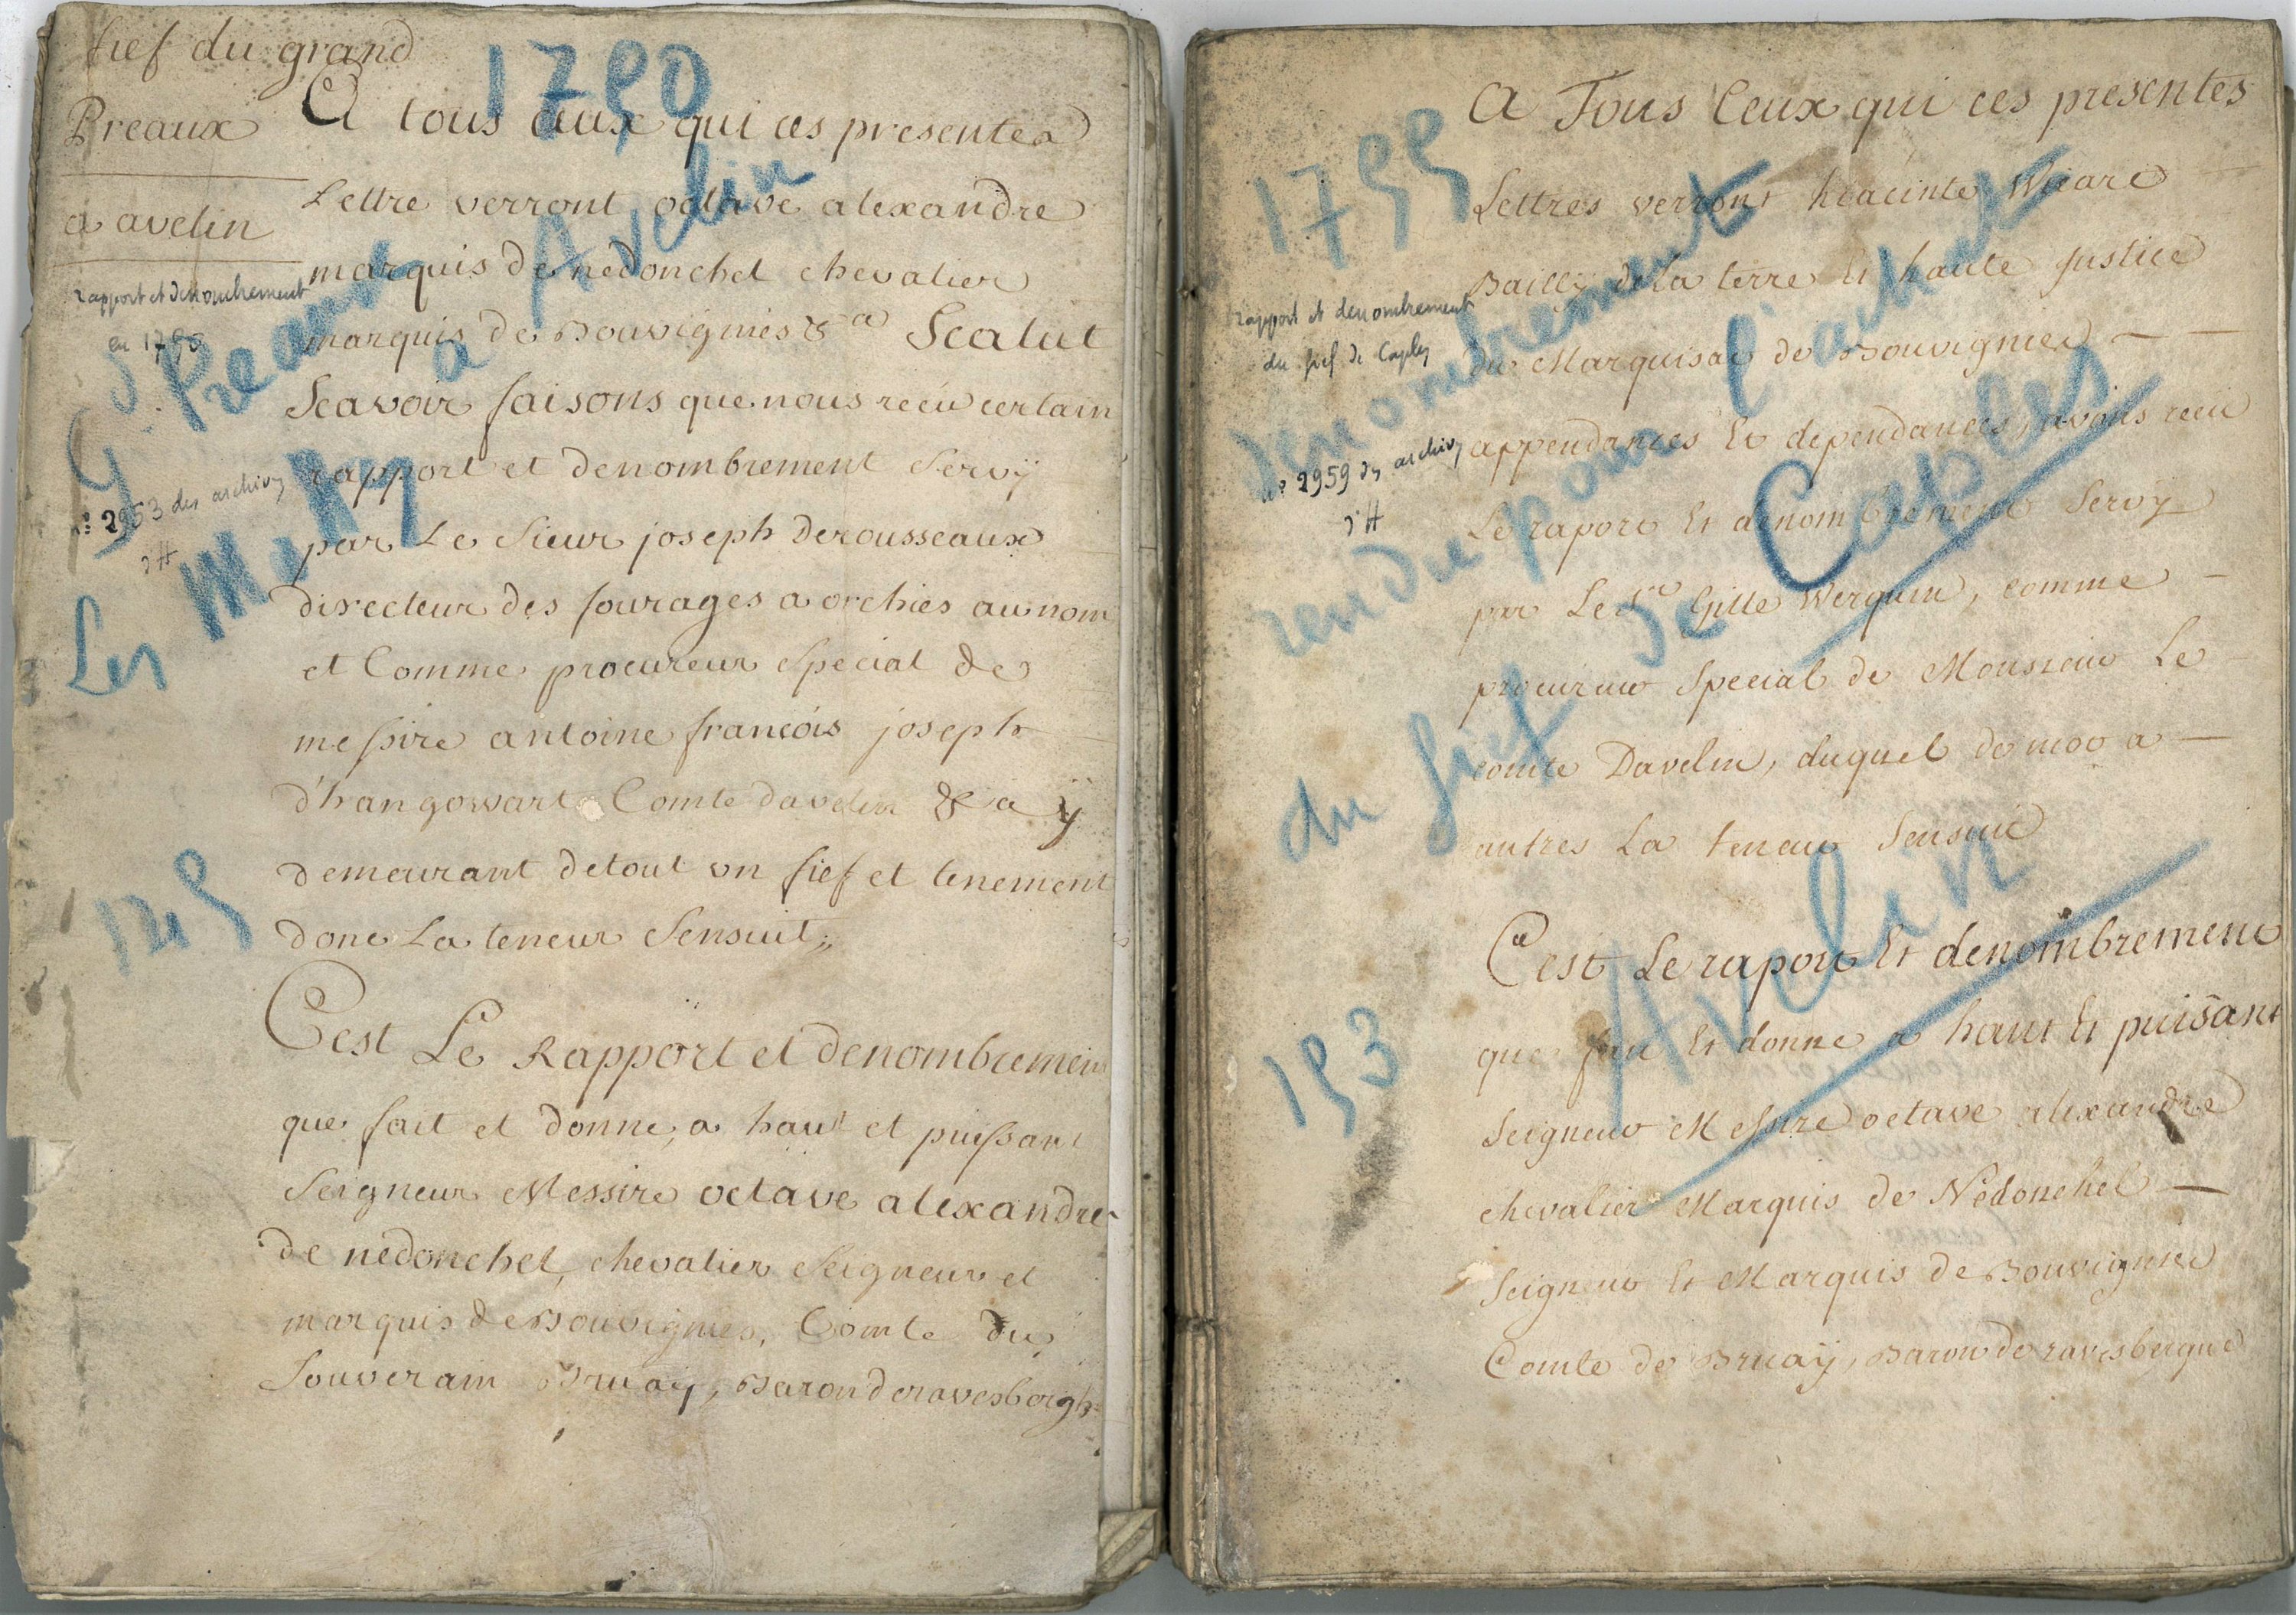 fief du grand
Preaux
a avelin
rapport et denombrement
en 1750
n° 2953 des archives
d'H
1750
Gd Preaux a Avelin
Les Mottes
149
A tous ceux qui ces presentes
Lettre verront octave alexandre
marquis de nedonchel chevalier
marquis de Bouvignies &a Scalut
Scavoir faisons que nous reçu certain
rapport et denombrement Servÿ
par Le Sieur joseph Derousseaux
directeur des fourages a orchies au nom
et Comme procureur Special de
messire antoine françois joseph
d'hangowart Comte davelin &a ÿ
demeurant detout un fief et tenement
donc La teneur Sensuit;
Cest Le Rapport et denombrement
que fait et donne, a haut et puissant
Seigneur Messire octave alexandre
de nedonchel, chevalier Seigneur et
marquis de Bouvignies, Comte du
Souverain Bruay, Baron de ravesbergh
1755
denombrement
rendu pour l'achat
du fief de Caples
Avelin
153
rapport et denombrement
du fief de Caples
n° 2959 des archives
d'H
A Tous Ceux qui ces presentes
Lettres verront hiacinte Wicart
Bailly de la terre Et haute Justice
du Marquisat de Bouvignies
appendances Et dependances, avons recu
Le raport Et denombrement Servÿ
par Le Sr Gille Werquin, comme
procureur Special de Monsieur Le
comte Davelin, duquel de mot a
autres La teneur Sensuit
Cest Le raport Et denombrement
que fait Et donne a haut Et puissant
Seigneur Messire octave alexandre
chevalier Marquis de Nedonchel
Seigneur Et Marquis de Bouvignies
Comte de Bruaÿ, Baron de ravesbergue